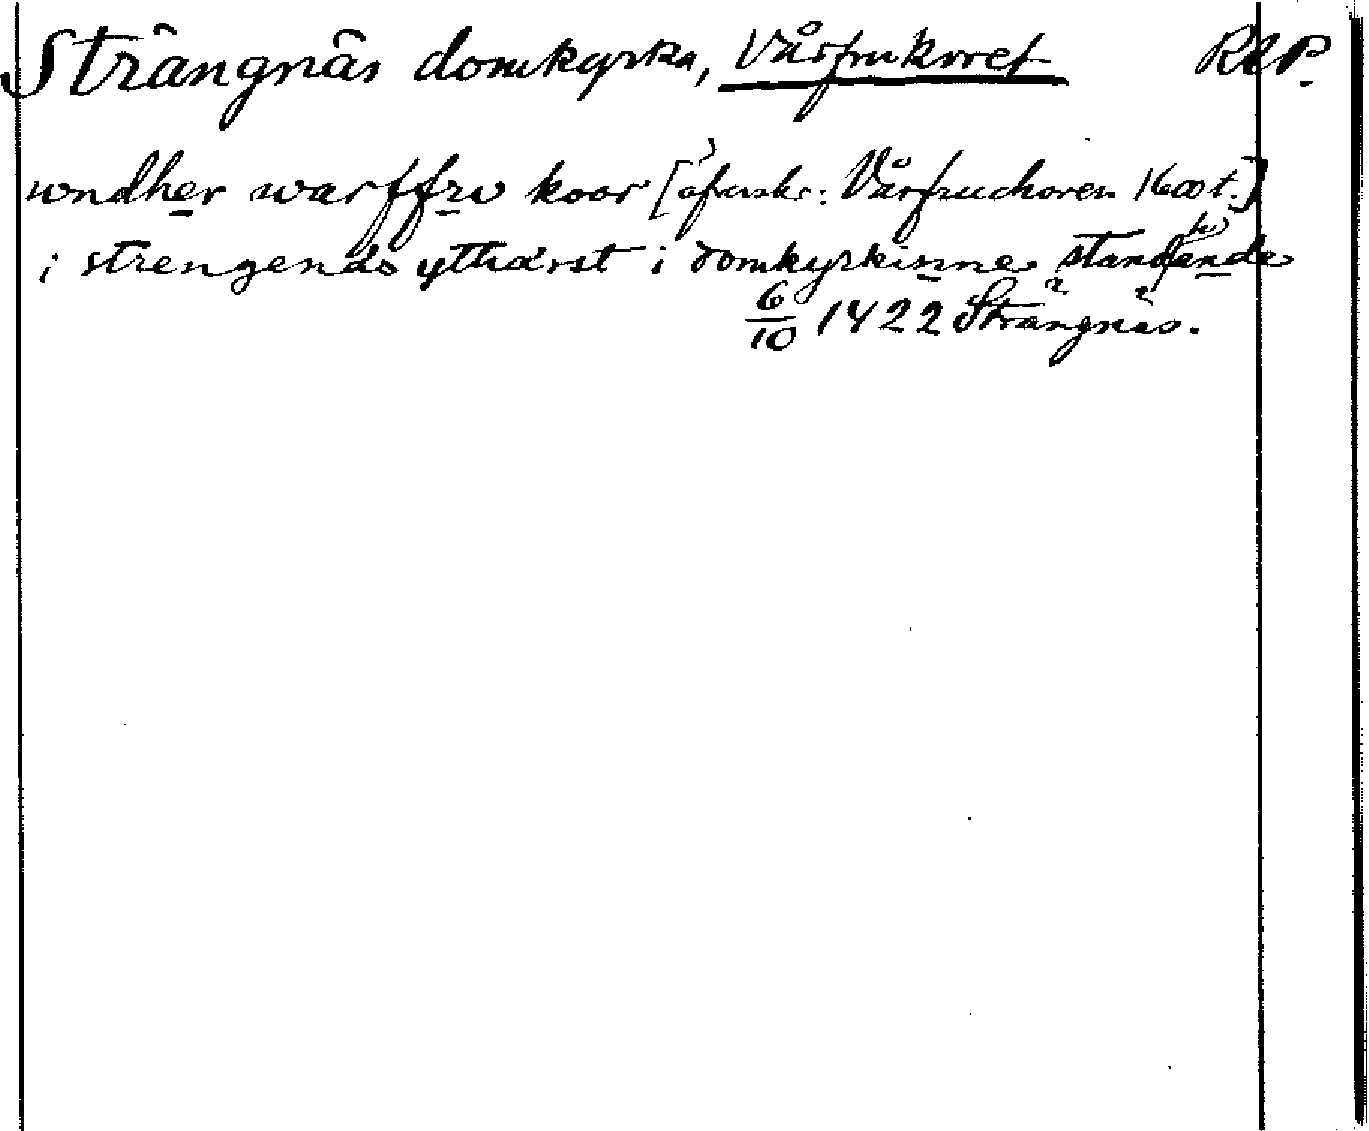 Strängnäs domkyrka, Vårfrukoret RAP.
wndher warffrw koor [öfverskr: Vårfruchoren 1600 t.]
i strengends ytthärst i domkyrkinne standande
6/10 1422 Strängnäs.